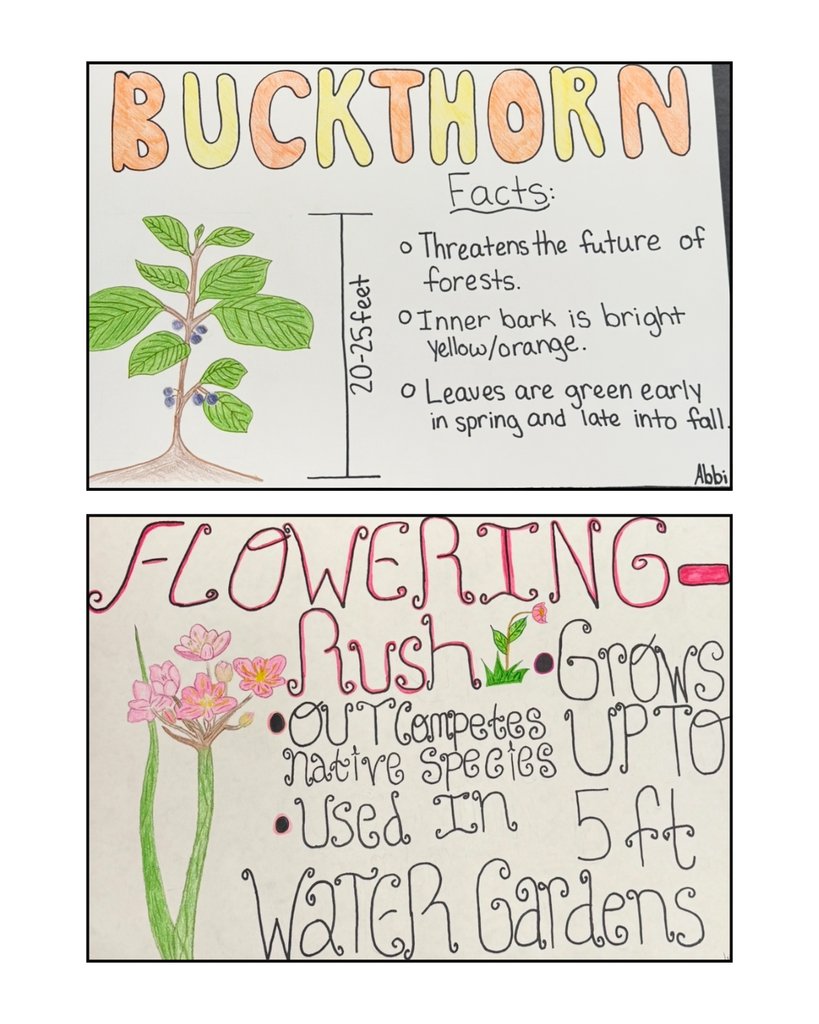 BUCKTHORN
Facts:
Threatens the future of
forests.
Inner bark is bright
yellow/orange.
Leaves are green early
in spring and late into fall.
20-25 feet
Abbi
FLOWERING-
Rush
Grows
UP TO
5 ft
OUTCompetes
native species
Used In
WATER Gardens